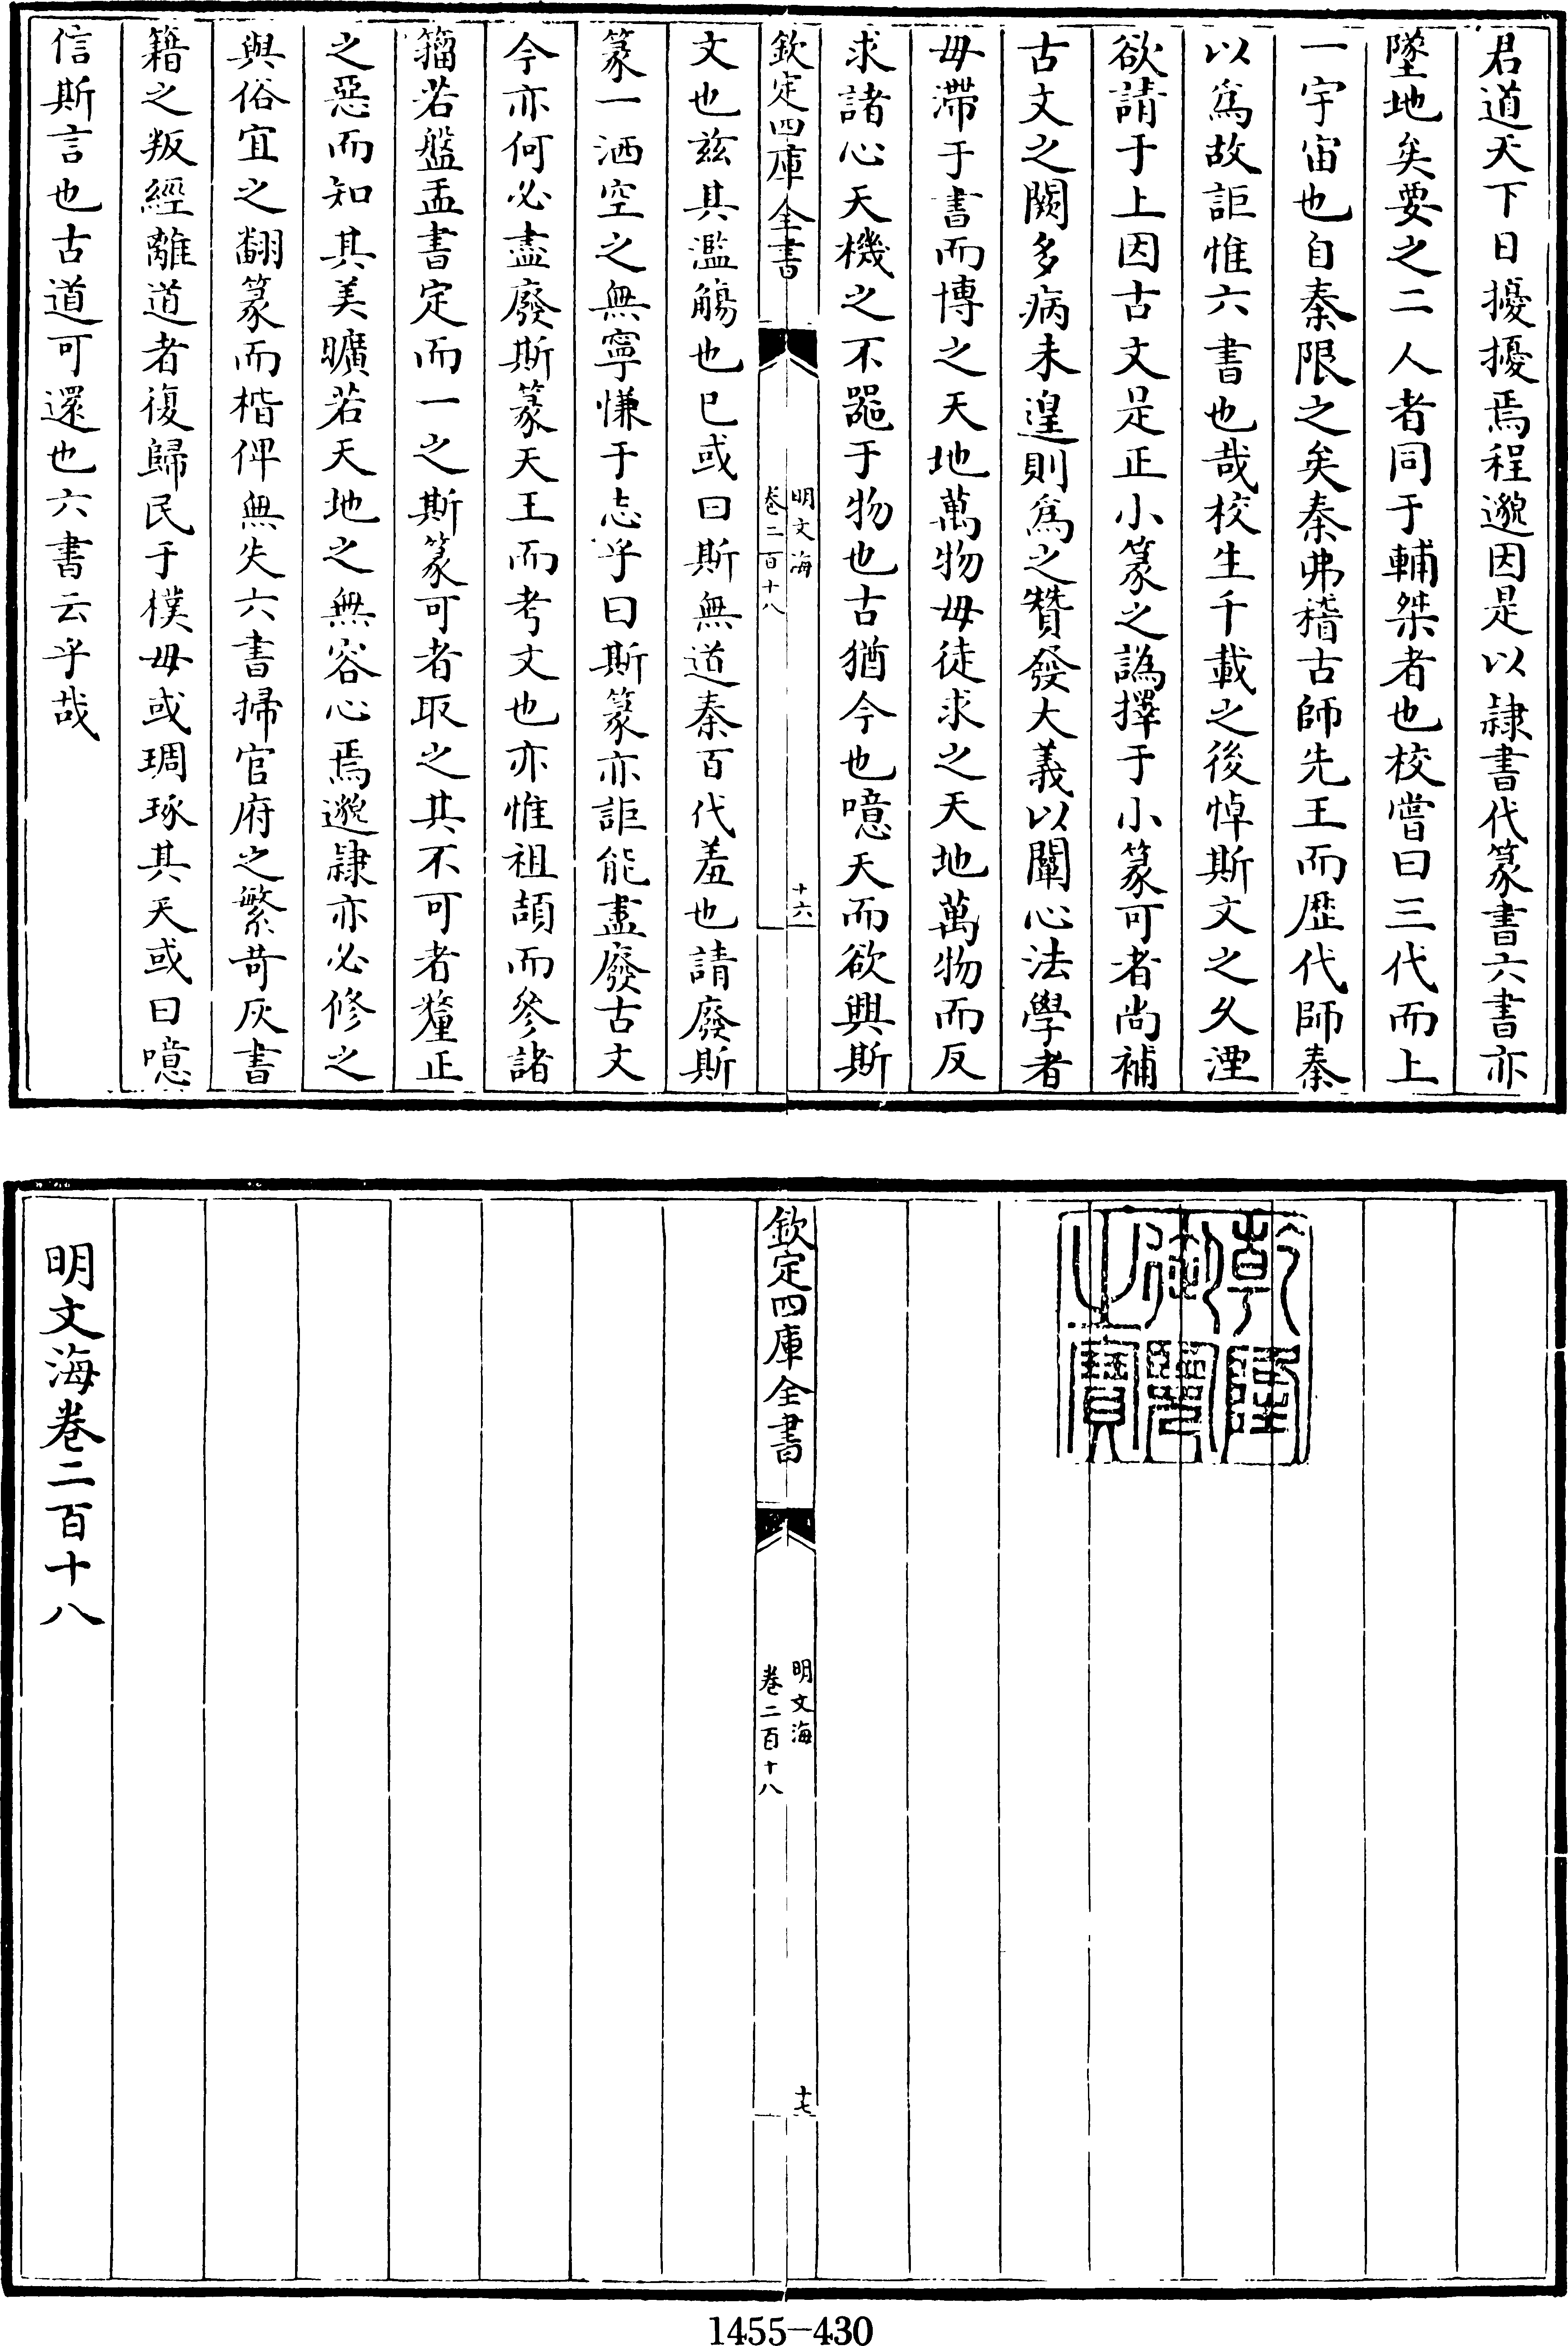 君道天下日擾擾焉程邈因是以隸書代篆書六書亦
墜地矣要之二人者同于輔桀者也校嘗曰三代而上
一宇宙也自秦限之矣秦弗稽古師先王而歷代師秦
以爲故詎惟六書也哉校生千載之後悼斯文之久湮
欲請于上因古文是正小篆之譌擇于小篆可者尚補
古文之闕多病未遑則爲之贊發大義以闡心法學者
毋滯于書而博之天地萬物毋徒求之天地萬物而反
求諸心天機之不器于物也古猶今也噫天而欲興斯
欽定四庫全書
明文海
卷二百十八
十六
文也兹其濫觴也已或曰斯無道秦百代羞也請廢斯
篆一洒空之無寧慊于志乎曰斯篆亦詎能盡廢古文
今亦何必盡廢斯篆天王而考文也亦惟祖頡而參諸
籀若盤盂書定而一之斯篆可者取之其不可者釐正
之惡而知其美曠若天地之無容心焉邈隸亦必修之
與俗宜之翻篆而楷俾無失六書掃官府之繁苛灰書
籍之叛經離道者復歸民于樸毋或琱琢其天或曰噫
信斯言也古道可還也六書云乎哉
乾隆
御覽
之寶
欽定四庫全書
明文海
卷二百十八
十七
明文海卷二百十八
1455-430